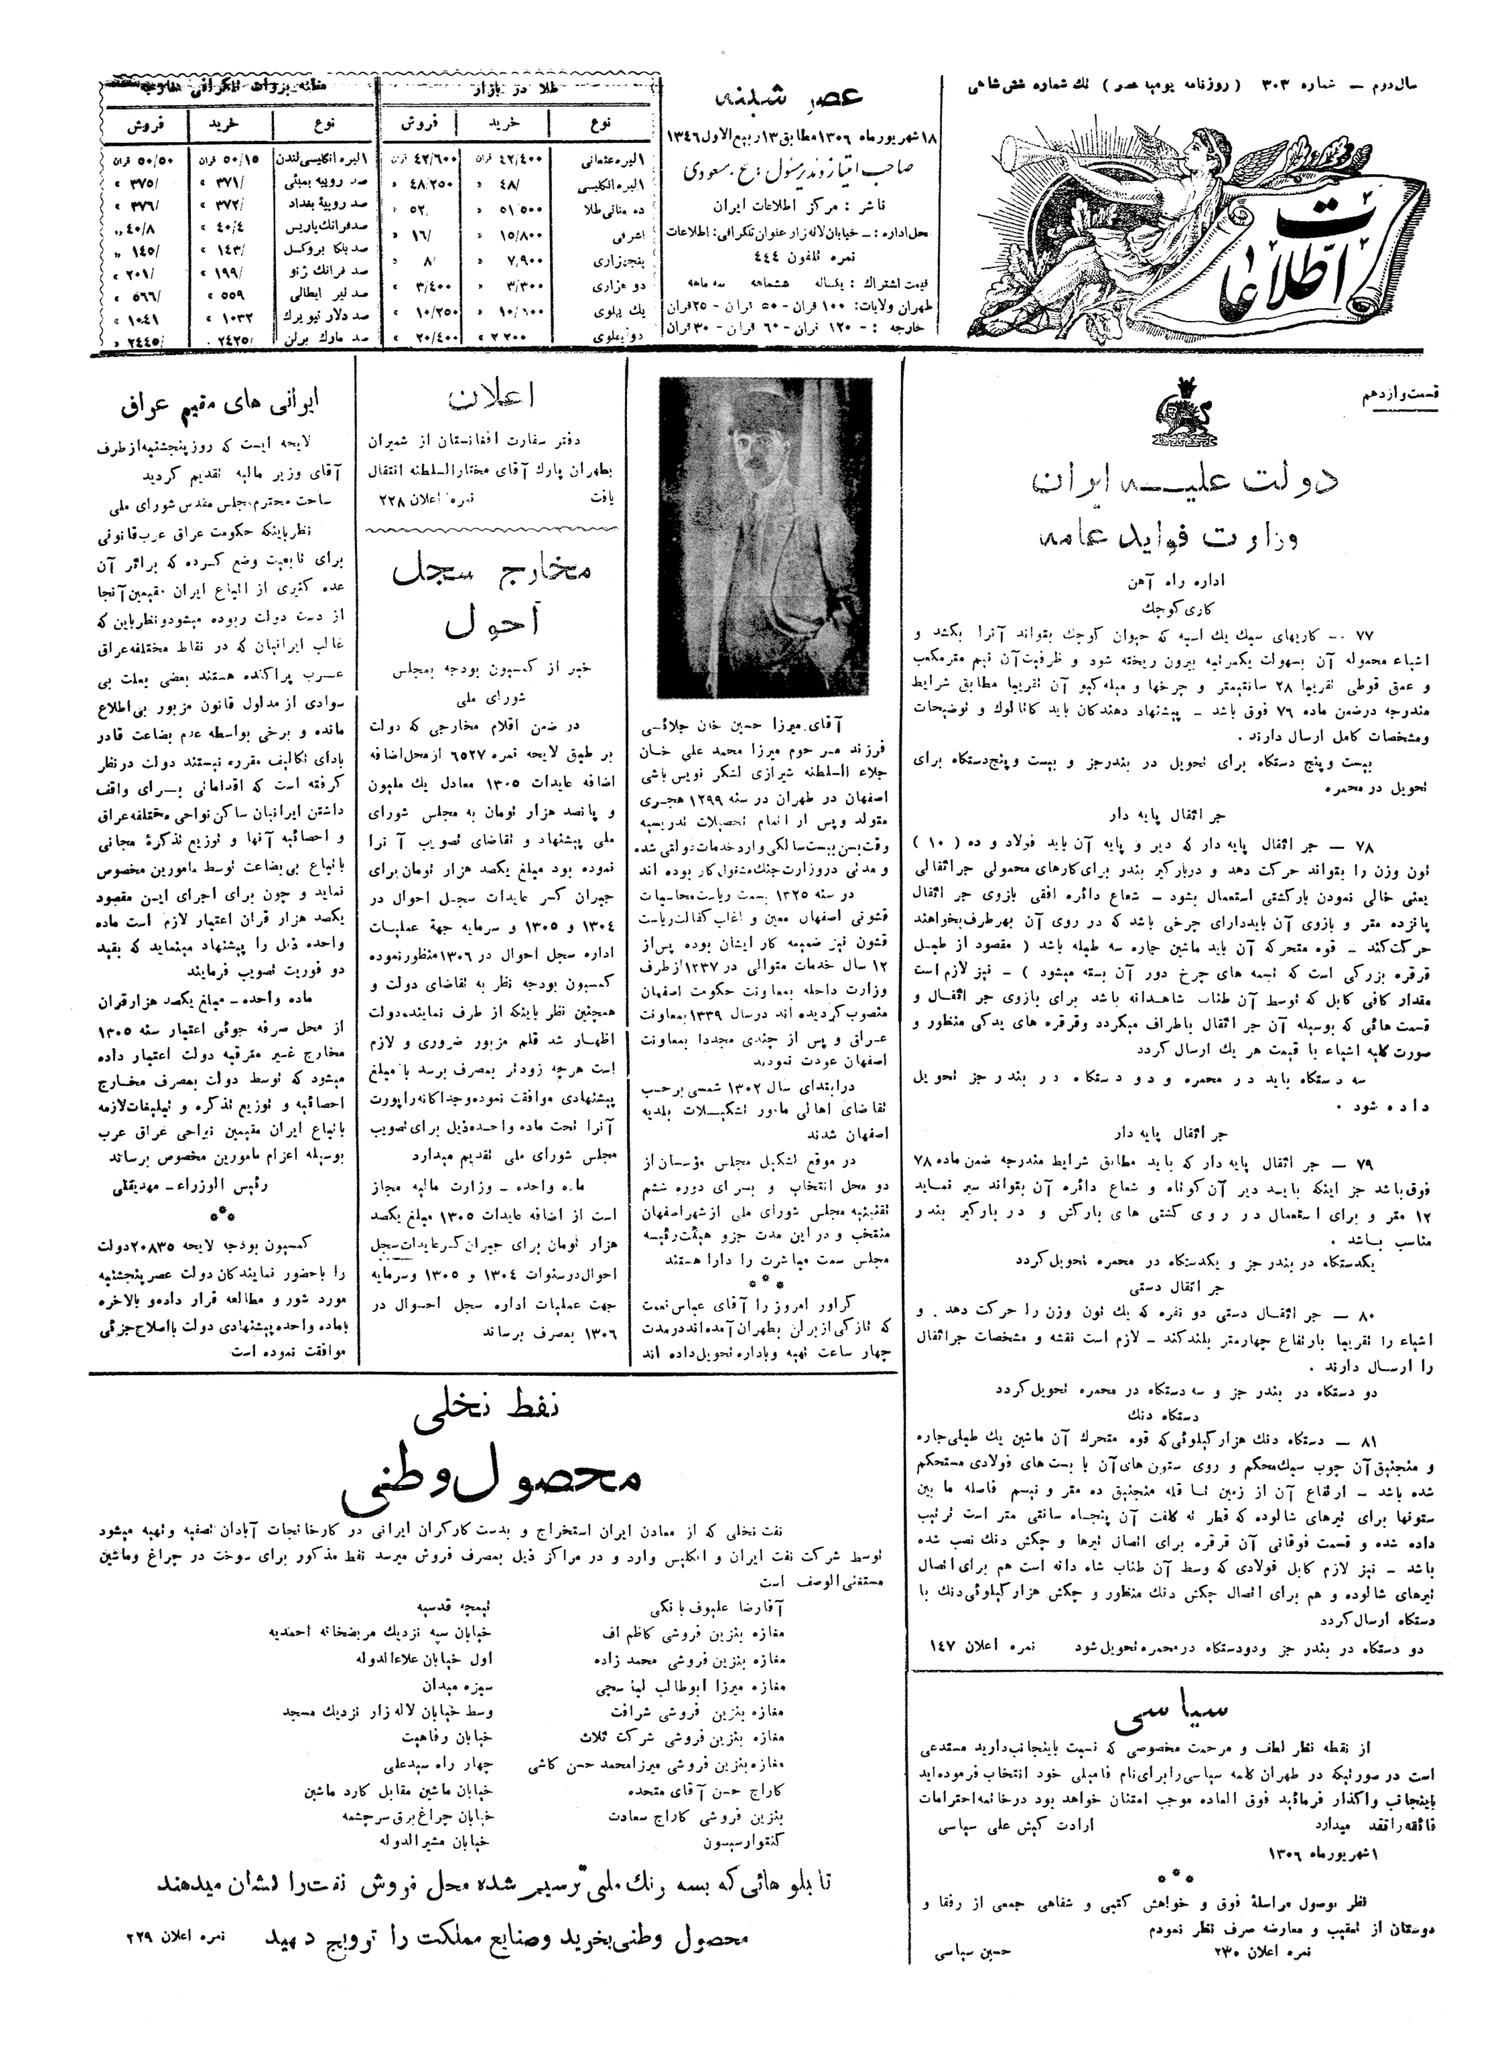 سال دوم – شماره ۳۰۳ ( روزنامه یومیه عصر ) تك شماره شش شاهی
اطلاعات
عصر شنبه
۱۸ شهریور ماه ۱۳۰۶ مطابق ۱۳ ربیع الاول ۱۳۴۶
صاحب امتیاز و مدیر مسئول : ع . مسعودی
ناشر : مرکز اطلاعات ایران
محل اداره : – خیابان لاله زار عنوان تلگرافی : اطلاعات
نمره تلفون ۴۴۴
قیمت اشتراك : یکساله ششماهه سه ماهه
طهران ولایات: ۱۰۰ قران – ۵۰ قران – ۲۵ قران
خارجه : – ۱۲۰ قران – ۶۰ قران – ۳۰ قران
طلا در بازار
نوع خرید فروش
۱ لیره عثمانی ۴۲/۴۰۰ قران ۴۲/۶۰۰ قران
۱ لیره انگلیسی ۴۸/ » ۴۸/۲۵۰ »
ده مناتی طلا ۵۱/۵۰۰ » ۵۲ »
اشرفی ۱۵/۸۰۰ » ۱۶/ »
پنجهزاری ۷,۹۰۰ » ۸/ »
دو هزاری ۳/۳۰۰ » ۳/۴۰۰ »
یك پهلوی ۱۰/۱۰۰ » ۱۰/۲۵۰ »
دو پهلوی ۲۰/۴۰۰ »
نوع خرید فروش
۱ لیره انگلیسی لندن ۵۰/۱۵ قران ۵۰/۵۰ قران
صد روپیه بمبئی ۳۷۱/ » ۳۷۵/ »
صد روپیۀ بغداد ۳۷۲/ » ۳۷۶/ »
صد فرانك پاریس ۴۰/۴ » ۴۰/۸ »
صد بلگا بروکسل ۱۴۳/ » ۱۴۵/ »
صد فرانك ژنو ۱۹۹/ » ۲۰۱/ »
صد لیر ایطالی ۵۵۹ » ۵۶۶/ »
صد دلار نیویرك ۱۰۳۲ » ۱۰۴۱ »
صد مارك برلن ۲۴۲۵/ ۲۴۴۵/ »
قسمت وازدهم
دولت علیه ایران
وزارت فواید عامه
اداره راه آهن
کاری کوچك
۷۷ – کاریهای سبك یك اسبه که حیوان کوچك بتواند آنرا بکشد و
اشیاء محموله آن بسهولت یکمرتبه بیرون ریخته شود و ظرفیت آن نیم مترمکعب
و عمق قوطی تقریبا ۲۸ سانتیمتر و چرخها و میله کیو آن تقریبا مطابق شرایط
مندرجه درضمن ماده ۷۶ فوق باشد – پیشنهاد دهندکان باید کاتالوك و توضیحات
ومشخصات کامل ارسال دارند .
بیست و پنج دستگاه برای تحویل در بندرجز و بیست و پنج دستگاه برای
تحویل در محمره
جر اثقال پایه دار
۷۸ – جر اثقال پایه دار که دیر و پایه آن باید فولاد و ده ( ۱۰ )
تون وزن را بتواند حرکت دهد و دربارکیر بندر برای کارهای محمولی جراثقالی
یعنی خالی نمودن بارکشتی استعمال بشود – شعاع دائره افقی بازوی جر اثقال
پانزده متر و بازوی آن باید دارای چرخی باشد که در روی آن بهرطرف بخواهند
حرکت کند – قوه متحرکه آن باید ماشین جماره سه طپله باشد ( مقصود از طپل
قرقره بزرکی است که تسمه های چرخ دور آن بسته میشود ) – نیز لازم است
مقدار کافی کابل که توسط آن طناب شاهدانه باشد برای بازوی جر اثقال و
قسمت هائی که بوسیله آن جر اثقال باطراف میکردد وقرقره های یدکی منظور و
صورت کلیه اشیاء با قیمت هر یك ارسال کردد
سه دستگاه باید در محمره و دو دستگاه در بندر جز تحویل
داده شود .
جر اثقال پایه دار
۷۹ – جر اثقال پایه دار که باید مطابق شرایط مندرجه ضمن ماده ۷۸
فوق باشد جز اینکه بایـد دیر آن کوتاه و شعاع دائره آن بتواند سیر نماید
۱۲ متر و برای استعمال در روی کشتی های بارکش و در بارکیر بندر
مناسب باشد .
یکدستکاه در بندر جز و یکدستکاه در محمره تحویل کردد
جر اثقال دستی
۸۰ – جر اثقال دستی دو نفره که یك تون وزن را حرکت دهد و
اشیاء را تقریبا بارتفاع چهارمتر بلند کند – لازم است نقشه و مشخصات جراثقال
را ارسال دارند .
دو دستکاه در بندر جز و سه دستکاه در محمره تحویل کردد
دستکاه دنك
۸۱ – دستکاه دنك هزار کیلوئی که قوه متحرك آن ماشین یك طپلی جاره
و منجنیق آن چوب سبك محکم و روی ستون های آن با بست های فولادی مستحکم
شده باشد – ارتفاع آن از زمین تا قله منجنیق ده متر و نیم فاصله ما بین
ستونها برای تیرهای شالوده که قطر ته کلفت آن پنجاه سانتی متر است ترتیب
داده شده و قسمت فوقانی آن قرقره برای اتصال تیرها و چکش دنك نصب شده
باشد – نیز لازم کابل فولادی که وسط آن طناب شاه دانه است هم برای اتصال
تیرهای شالوده و هم برای اتصال چکش دنك منظور و چکش هزار کیلوئی دنك با
دستکاه ارسال کردد
دو دستکاه در بندر جز ودودستکاه در محمره تحویل شود نمره اعلان ۱۴۷
سیاسی
از نقطه نظر لطف و مرحمت مخصوصی که نسبت باینجانب دارید مستدعی
است در صورتیکه در طهران کلمه سیاسی را برای نام فامیلی خود انتخاب فرموده اید
باینجانب واگذار فرمائید فوق العاده موجب امتنان خواهد بود درخاتمه احترامات
فائقه را تقدیم میدارد ارادت کیش علی سیاسی
۱ شهریور ماه ۱۳۰۶
نظر بوصول مراسلۀ فوق و خواهش کتبی و شفاهی جمعی از رفقا و
دوستان از تعقیب و معارضه صرف نظر نمودم
نمره اعلان ۲۳۰ حسین سیاسی
آقای میرزا حسین خان جلائی
فرزند مرحوم میرزا محمد علی خان
جلاء السلطنه شیرازی لشکر نویس باشی
اصفهان در طهران در سنه ۱۲۹۹ هجری
متولد وپس از اتمام تحصیلات تدریسیه
وقت بسن بیست سالکی وارد خدمات دولتی شده
و مدتی دروزارت جنك مشغول کار بوده اند
در سنه ۱۳۲۵ بسمت ریاست محاسبات
قشونی اصفهان معین و اغلب کفالت ریاست
قشون نیز ضمیمه کار ایشان بوده پس از
۱۲ سال خدمات متوالی در ۱۳۳۷ از طرف
وزارت داخله بمعاونت حکومت اصفهان
منصوب گردیده اند درسال ۱۳۳۹ بمعاونت
عراق و پس از چندی مجددا بمعاونت
اصفهان عودت نمودند
در ابتدای سال ۱۳۰۲ شمسی برحسب
تقاضای اهالی مامور تشکیلات بلدیه
اصفهان شدند
در موقع تشکیل مجلس مؤسسان از
دو محل انتخاب و برای دوره ششم
تقنینیه مجلس شورای ملی از شهر اصفهان
منتخب و در این مدت جزو هیئت رئیسه
مجلس سمت مباشرت را دارا هستند
گراور امروز را آقای عباس نعمت
که تازکی از برلن بطهران آمده اند در مدت
چهار ساعت تهیه و باداره تحویل داده اند
اعلان
دفتر سفارت افغانستان از شمیران
بطهران پارك آقای مختار السلطنه انتقال
یافت نمره اعلان ۲۲۸
مخارج سجل
احول
خبر از کمسیون بودجه بمجلس
شورای ملی
در ضمن اقلام مخارجی که دولت
بر طبق لایحه نمره ۶۵۲۷ از محل اضافه
اضافه عایدات ۱۳۰۵ معادل یك ملیون
و پانصد هزار تومان به مجلس شورای
ملی پیشنهاد و تقاضای تصویب آنرا
نموده بود مبلغ یکصد هزار تومان برای
جبران کسر عایدات سجل احوال در
۱۳۰۴ و ۱۳۰۵ و سرمایه جهة عملیات
اداره سجل احوال در ۱۳۰۶ منظور نموده
کمسیون بودجه نظر به تقاضای دولت و
همچنین نظر باینکه از طرف نماینده دولت
اظهار شد قلم مزبور ضروری و لازم
است هرچه زودتر بمصرف برسد با مبلغ
پیشنهادی موافقت نموده وجداکانه راپورت
آنرا تحت ماده واحده ذیل برای تصویب
مجلس شورای ملی تقدیم میدارد
ماده واحده – وزارت مالیه مجاز
است از اضافه عایدات ۱۳۰۵ مبلغ یکصد
هزار تومان برای جبران کسر عایدات سجل
احوال در سنوات ۱۳۰۴ و ۱۳۰۵ و سرمایه
جهت عملیات اداره سجل احوال در
۱۳۰۶ بمصرف برساند
ایرانی های مقیم عراق
لایحه ایست که روز پنجشنبه از طرف
آقای وزیر مالیه تقدیم گردید
ساحت محترم مجلس مقدس شورای ملی
نظر باینکه حکومت عراق عرب قانونی
برای تابعیت وضع کرده که براثر آن
عده کثیری از اتباع ایران مقیمین آنجا
از دست دولت ربوده میشود و نظر باین که
غالب ایرانیان که در نقاط مختلفه عراق
عرب پراکنده هستند بعضی بعلت بی
سوادی از مدلول قانون مزبور بی اطلاع
مانده و برخی بواسطه عدم بضاعت قادر
بادای تکالیف مقرره نیستند دولت در نظر
گرفته است که اقداماتی برای واقف
داشتن ایرانیان ساکن نواحی مختلفه عراق
و احصائیه آنها و توزیع تذکرۀ مجانی
باتباع بی بضاعت توسط مامورین مخصوص
نماید و چون برای اجرای این مقصود
یکصد هزار قران اعتبار لازم است ماده
واحده ذیل را پیشنهاد مینماید که بقید
دو فوریت تصویب فرمایند
ماده واحده – مبلغ یکصد هزار قران
از محل صرفه جوئی اعتبار سنه ۱۳۰۵
مخارج غیر مترقبه دولت اعتبار داده
میشود که توسط دولت بمصرف مخارج
احصائیه و توزیع تذکره و تبلیغات لازمه
باتباع ایران مقیمین نواحی عراق عرب
بوسیله اعزام مامورین مخصوص برساند
رئیس الوزراء – مهدیقلی
کمسیون بودجه لایحه ۲۰۸۳۵ دولت
را باحضور نمایندکان دولت عصر پنجشنبه
مورد شور و مطالعه قرار داده و بالاخره
باماده واحده پیشنهادی دولت بااصلاح جزئی
موافقت نموده است
نفط نخلی
محصول وطنی
نفت نخلی که از معادن ایران استخراج و بدست کارکران ایرانی در کارخانجات آبادان تصفیه و تهیه میشود
توسط شرکت نفت ایران و انکلیس وارد و در مراکز ذیل بمصرف فروش میرسد نفط مذکور برای سوخت در چراغ وماشین
مستغنی الوصف است
آقا رضا علیوف بانکی تیمچه قدسیه
مغازه بنزین فروشی کاظم اف خیابان سپه نزدیك مریضخانه احمدیه
مغازه بنزین فروشی محمد زاده اول خیابان علاءالدوله
مغازه میرزا ابوطالب سبزه میدان
مغازه بنزین فروشی شرافت وسط خیابان لاله زار نزدیك مسجد
مغازه بنزین فروشی شرکت ثلاث خیابان رفاهیت
مغازه بنزین فروشی میرزا محمد حسن کاشی چهار راه سیدعلی
کاراج حسن آقای متحده خیابان ماشین مقابل کارد ماشین
بنزین فروشی کاراج سعادت خیابان چراغ برق سرچشمه
کنتوار سیسون خیابان مشیر الدوله
تابلو هائی که بسه رنك ملی ترسیم شده محل فروش نفت را نشان میدهند
محصول وطنی بخرید و صنایع مملکت را ترویج دهید نمره اعلان ۲۲۹